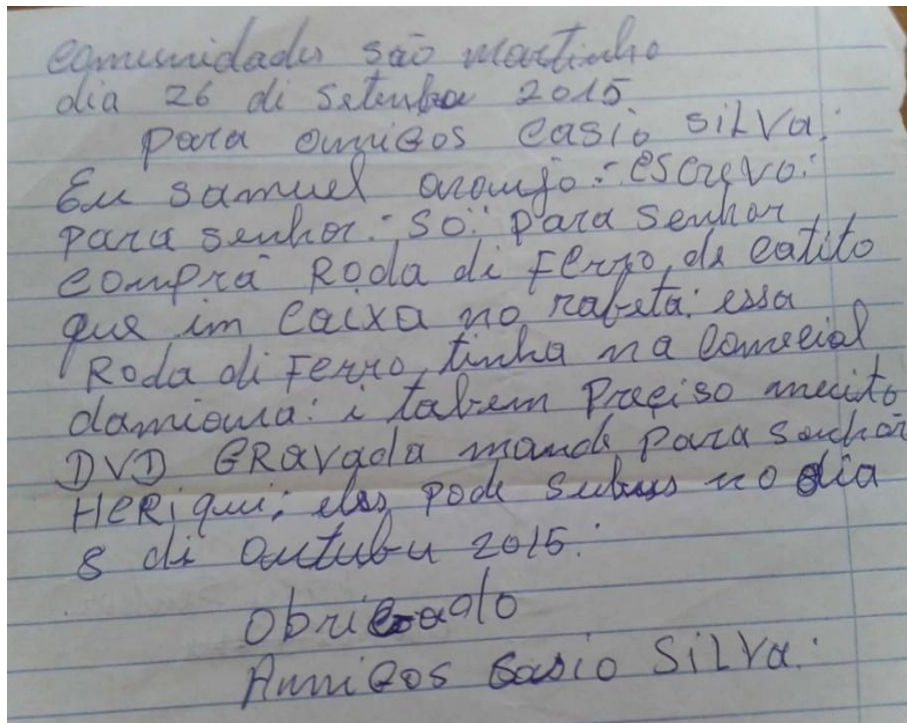 comunidades são martinho
dia 26 di setenbro 2015
para amiGos Casio SiLVa.
Eu samuel araujo: escrevo:
para senhor: só: para senhor
comprá Roda di Ferro, de catito
que im caixa no rabeta: essa
Roda di Ferro, tinha na comecial
damiana: i tabem Preciso muito
DVD GRavada mande para senhor
HeRiqui; eles pode no dia
8 di outubu 2015.
obriGado
AmiGos Casio SiLVa.